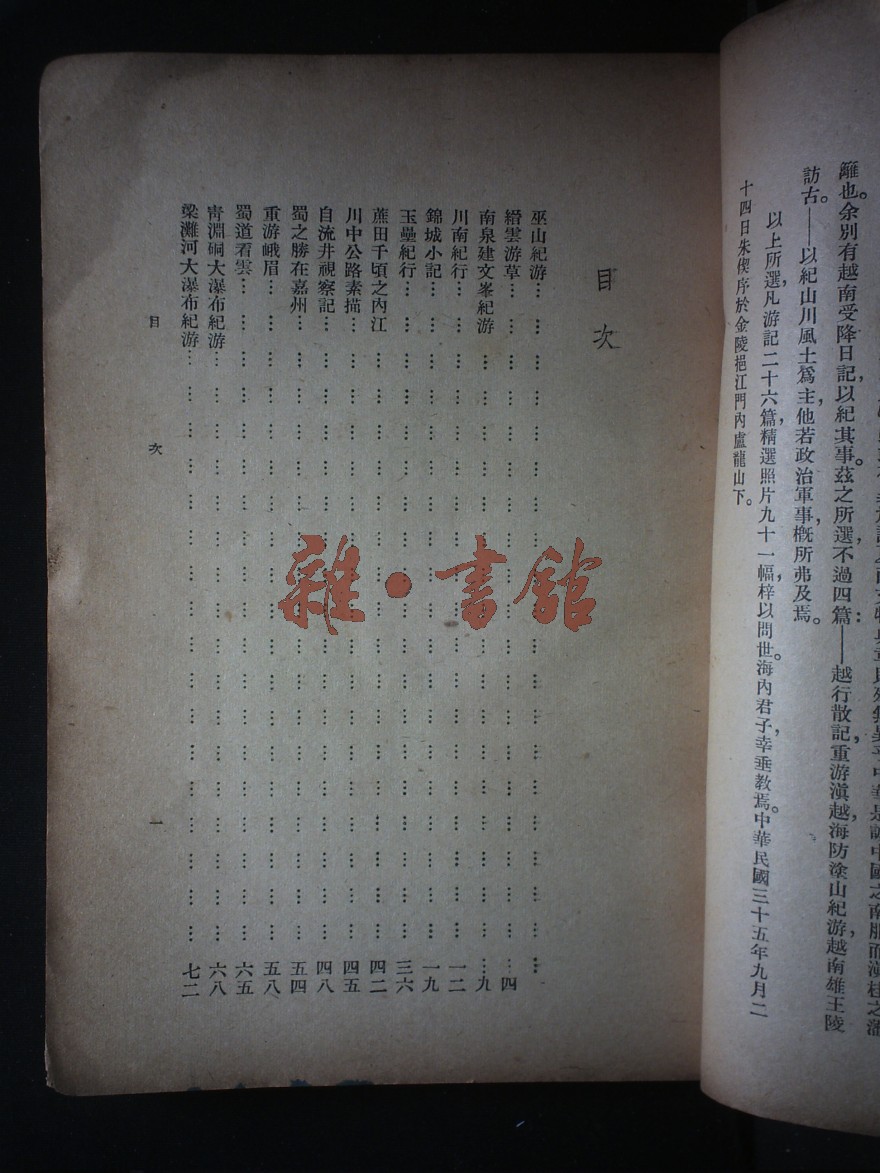 籬也。余別有越南受降日記，以紀其事。茲之所選，不過四篇：——越行散記，重游滇越，海防塗山紀游，越南雄王陵
訪古。——以紀山川風土爲主，他若政治軍事，概所弗及焉。
以上所選，凡游記二十六篇，精選照片九十一幅，梓以問世。海內君子，幸垂教焉。中華民國三十五年九月二
十四日朱偰序於金陵挹江門內盧龍山下。
目次
巫山紀游
縉雲游草 四
南泉建文峯紀游 九
川南紀行 一二
錦城小記 一九
玉壘紀行 三六
蔗田千頃之內江 四二
川中公路素描 四五
自流井視察記 四八
蜀之勝在嘉州 五四
重游峨眉 五八
蜀道看雲 六五
靑淵硐大瀑布紀游 六八
梁灘河大瀑布紀游 七二
目 次 一
雜·書館